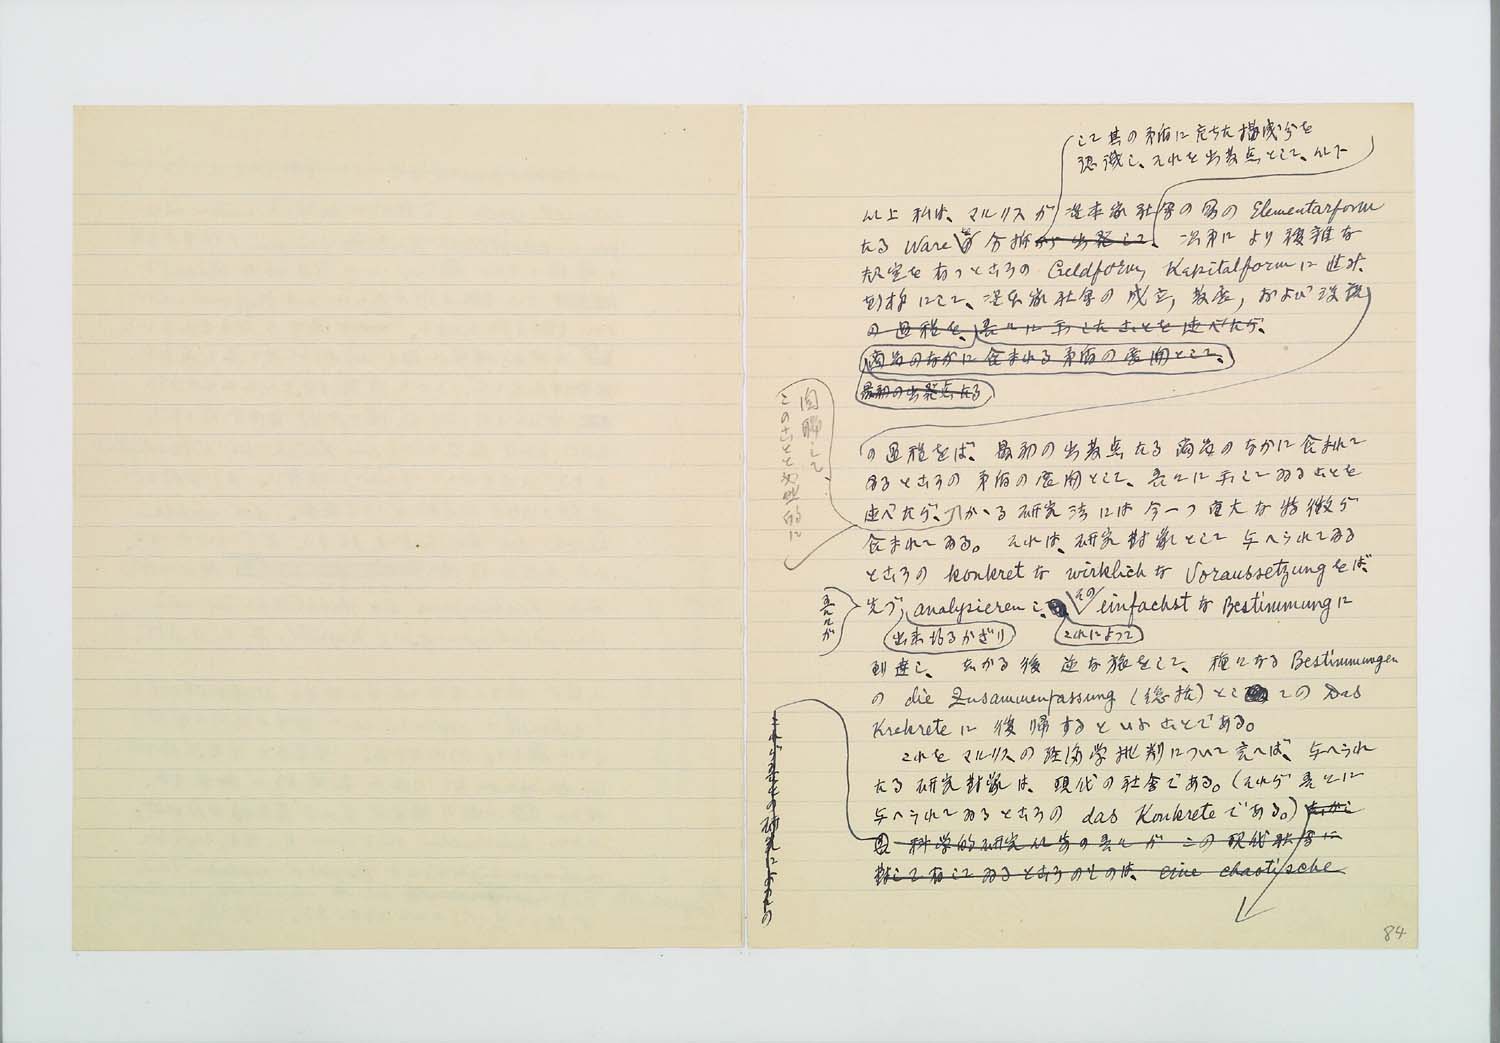 して其の矛盾に充ちた構成分を
認識し、それを出発点として、以下
以上 私は、マルクスが 資本家社会の富の Elementarform
たる Ware を 分析から出発して、 次第により複雑な
規定を有つところの Geldform, Kapitalform に進み、
別様にして、資本家社会の成立, 発展, および没落
の過程を、吾々に示したことを述べたが、
商品のなかに含まれる矛盾の展開として、
最初の出発点たる
の過程をば、最初の出発点たる商品のなかに含まれて
ゐるところの矛盾の展開として、吾々に示してゐることを
述べたが、かかる研究法には今一つ重大な特徴が
含まれてゐる。それは、研究対象として与へられてゐる
ところの konkret な wirklich な Voraussetzung をば、
先づ analysieren し、その einfachst な Bestimmung に
出来得るかぎり これによつて
到達し、しかる後 逆な旅をして、種々なる Bestimmungen
の die Zusammenfassung (総括) として この das
Krekrete に復帰するといふことである。
これをマルクスの経済学批判について言へば、与へられ
たる研究対象は、現代の社会である。(それが吾々に
与へられてゐるところの das Konkrete である。) しかし
科学的研究以前の吾々がこの現代社会に
対して有してゐるところのものは、eine chaotische
関聯して、
このことと必然的に
吾々が
の研究によつての
84